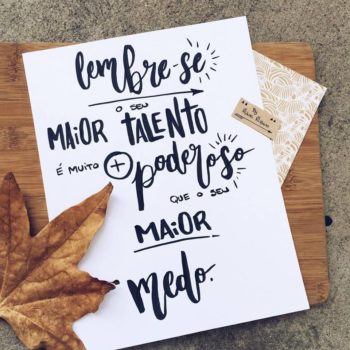 lembre-se
O SEU
MAIOR TALENTO
É MUITO + poderoso
QUE O SEU
MAIOR
medo.